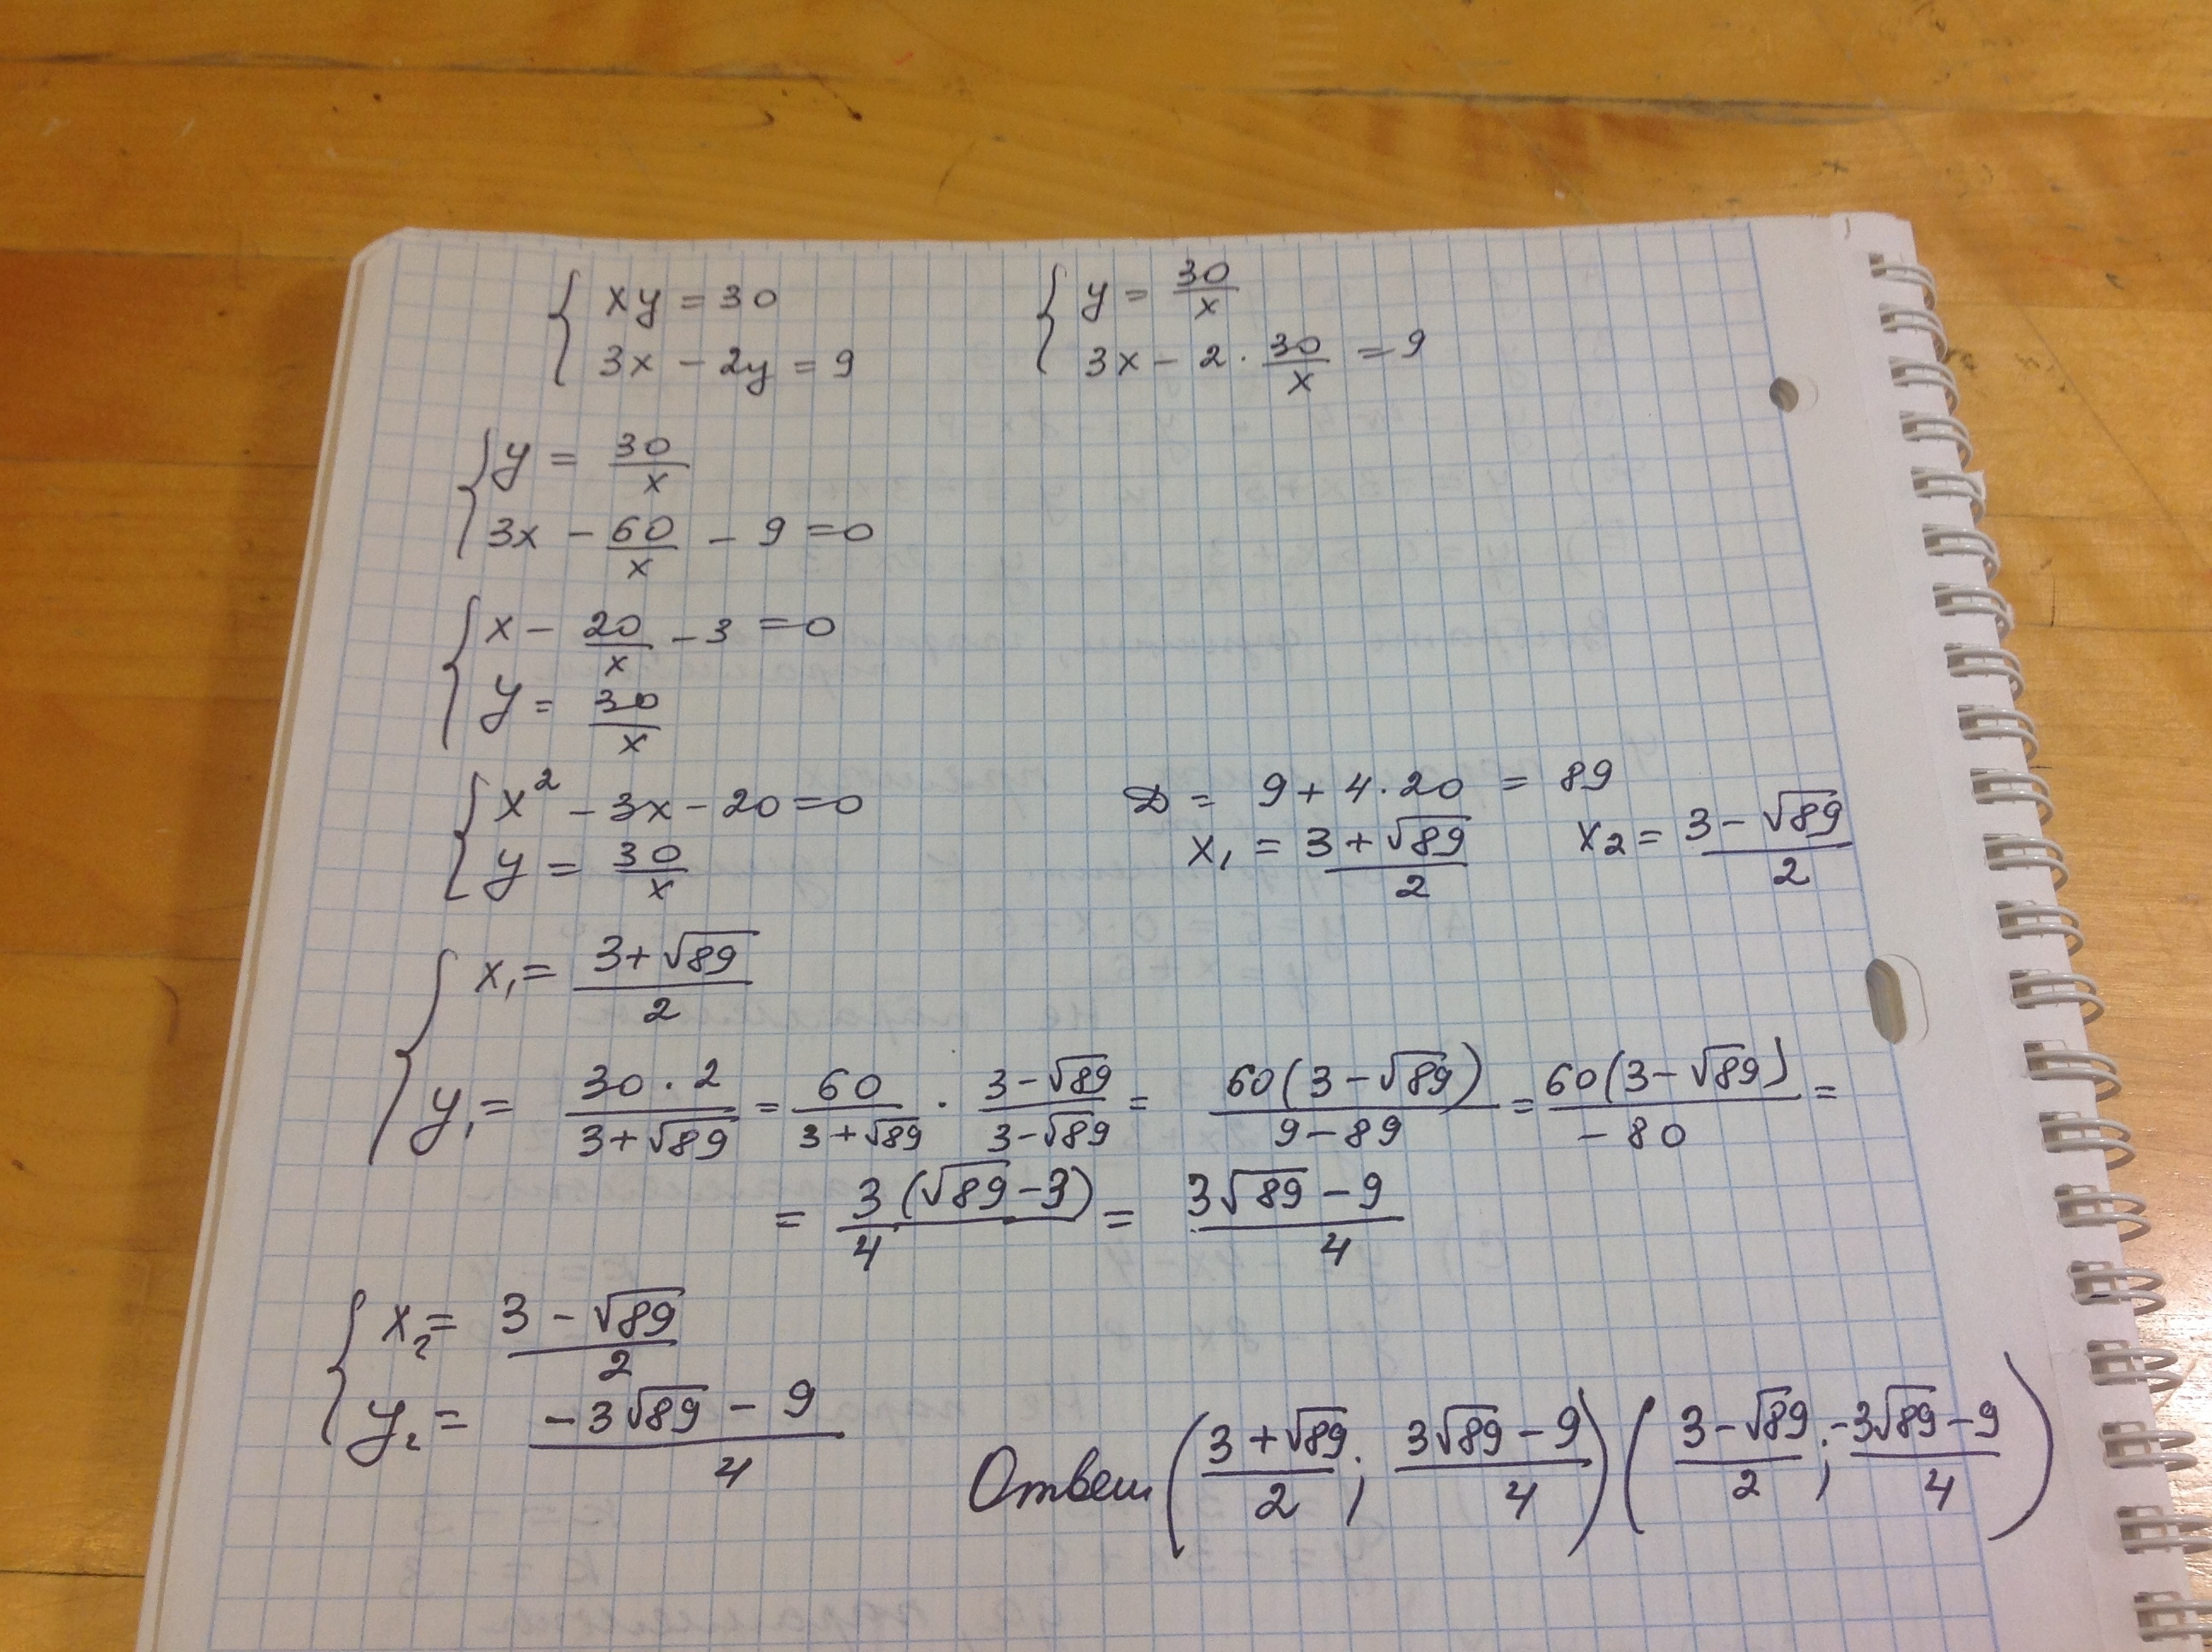 { xy = 30
3x - 2y = 9
{ y = 30/x
3x - 2 · 30/x = 9
{ y = 30/x
3x - 60/x - 9 = 0
{ x - 20/x - 3 = 0
y = 30/x
{ x² - 3x - 20 = 0
y = 30/x
D = 9 + 4 · 20 = 89
x₁ = (3 + √89)/2 x₂ = (3 - √89)/2
{ x₁ = (3 + √89)/2
y₁ = (30 · 2)/(3 + √89) = 60/(3 + √89) · (3 - √89)/(3 - √89) = 60(3 - √89)/(9 - 89) = 60(3 - √89)/(-80) =
= 3(√89 - 3)/4 = (3√89 - 9)/4
{ x₂ = (3 - √89)/2
y₂ = (-3√89 - 9)/4
Ответ ((3 + √89)/2 ; (3√89 - 9)/4) ((3 - √89)/2 ; (-3√89 - 9)/4)